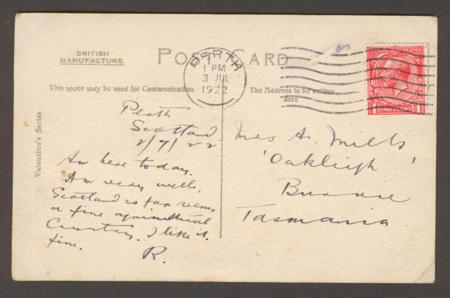 BRITISH
MANUFACTURE.
POST CARD
PERTH
1 PM
3 JUL
1922
This space may be used for Communication.
The Address to be written
here
Valentine's Series
Perth
Scotland
2/7/22
Am here today.
Am very well.
Scotland so far seems
a fine agricultural
Country. I like it
fine.
R.
Mrs A. Mills
'Oakleigh'
Burnie
Tasmania